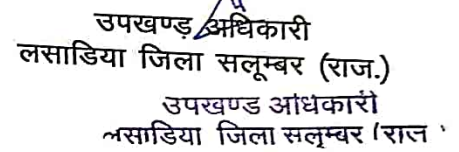 उपखण्ड अधिकारी
लसाडिया जिला सलूम्बर (राज.)
उपखण्ड अधिकारी
लसाडिया जिला सलूम्बर (राज